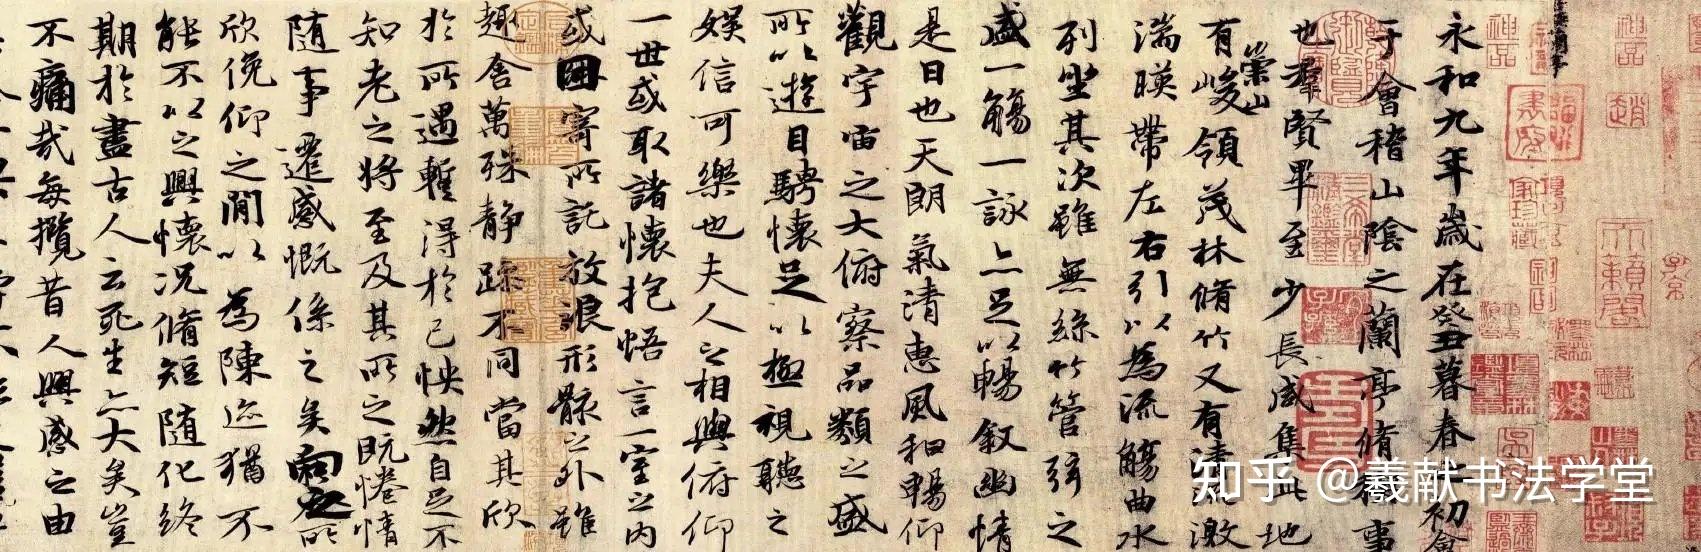 永和九年歲在癸丑暮春之初會
于會稽山陰之蘭亭脩禊事
也羣賢畢至少長咸集此地
有崇山峻領茂林脩竹又有清流激
湍暎帶左右引以為流觴曲水
列坐其次雖無絲竹管弦之
盛一觴一詠亦足以暢敘幽情
是日也天朗氣清惠風和暢仰
觀宇宙之大俯察品類之盛
所以遊目騁懷足以極視聽之
娛信可樂也夫人之相與俯仰
一世或取諸懷抱悟言一室之內
或因寄所託放浪形骸之外雖
趣舍萬殊靜躁不同當其欣
於所遇暫得於己怏然自足不
知老之將至及其所之既惓情
隨事遷感慨係之矣向之所
欣俛仰之閒以為陳迹猶不
能不以之興懷況脩短隨化終
期於盡古人云死生亦大矣豈
不痛哉每攬昔人興感之由
神品
神品
趙
知乎 @羲献书法学堂